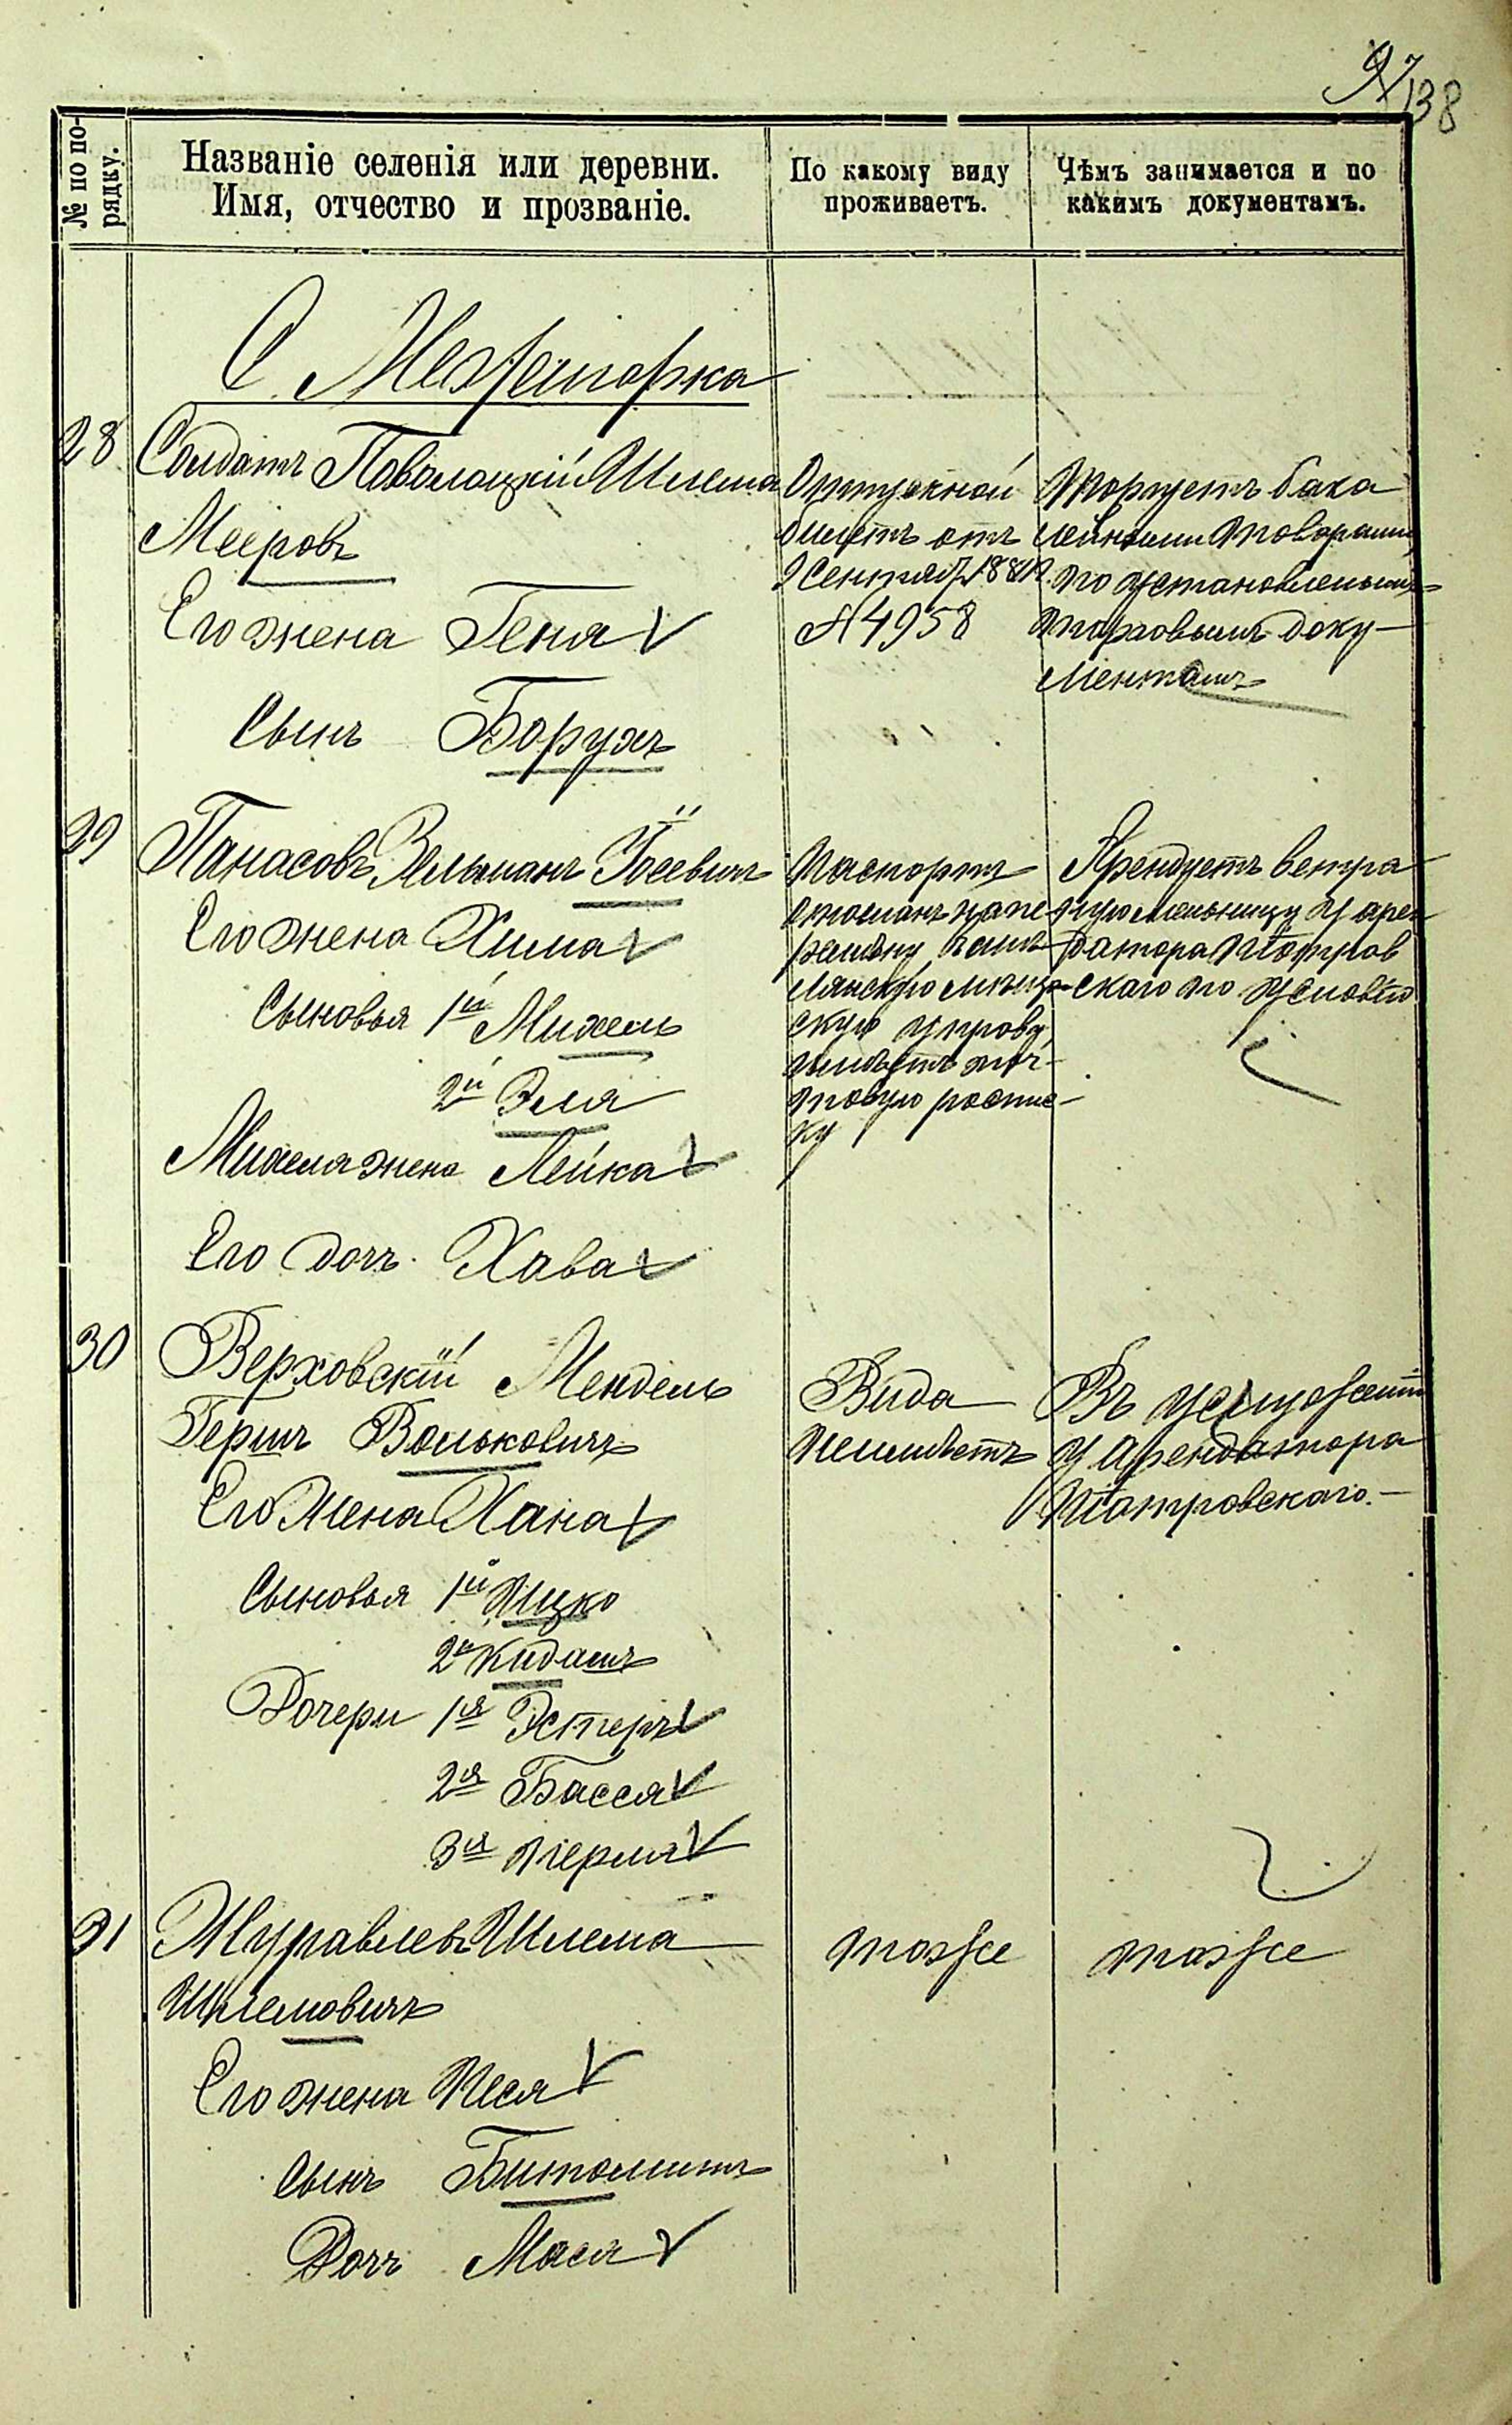 97
138
№ по по-
рядку.
Названіе селенія или деревни.
Имя, отчество и прозваніе.
По какому виду
проживаетъ.
Чѣмъ занимается и по
какимъ документамъ.
С. Межегорка
28 Солдатъ Поволоцкій Шлема
Мееровъ
Его жена Геня
Сынъ Борухъ
Отпускной
билетъ отъ
9 Сентяб. 188
№ 4958
Торгуетъ бака
лейными товарами
по установленнымъ
торговымъ доку-
ментамъ
29 Панасовъ Зельманъ Іосевич
Его жена Хима
Сыновья 1й Михель
2й Эля
Михеля жена Лейка
Его дочь. Хава
Паспортъ
отосланъ на пе
ремѣну
мѣща
скую управу
имѣетъ поч-
товую роспис-
ку
Арендуетъ ветря
ную мельницу у арен
датора Піотров
скаго по условію
30 Верховскій Мендель
Гершъ Вольковичъ
Его жена Хана
Сыновья 1й Ицко
2й Кидашъ
Дочери 1я Эстеръ
2я Бася
3я Перля
Вида
неимѣетъ
Въ услуженіи
у арендатора
Піотровскаго.—
31 Журавлевъ Шлема
Шлемовичъ
Его жена Песя
Сынъ
Дочь Мася
тоже
тоже